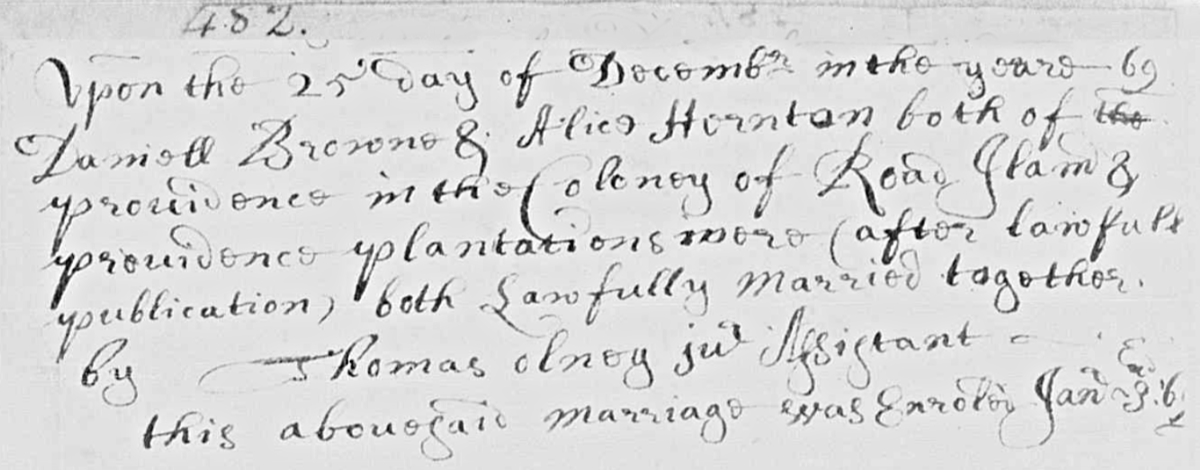 482.
Vpon the 25 day of Decembr in the yeare 69
Daniell Browne & Alice Hernton both of the
providence in the Coloney of Road Iland &
providence plantations were (after lawfull
publication) both Lawfully Married together.
by Thomas olney jur Assistant
this abovesaid marriage was Enroled Janr